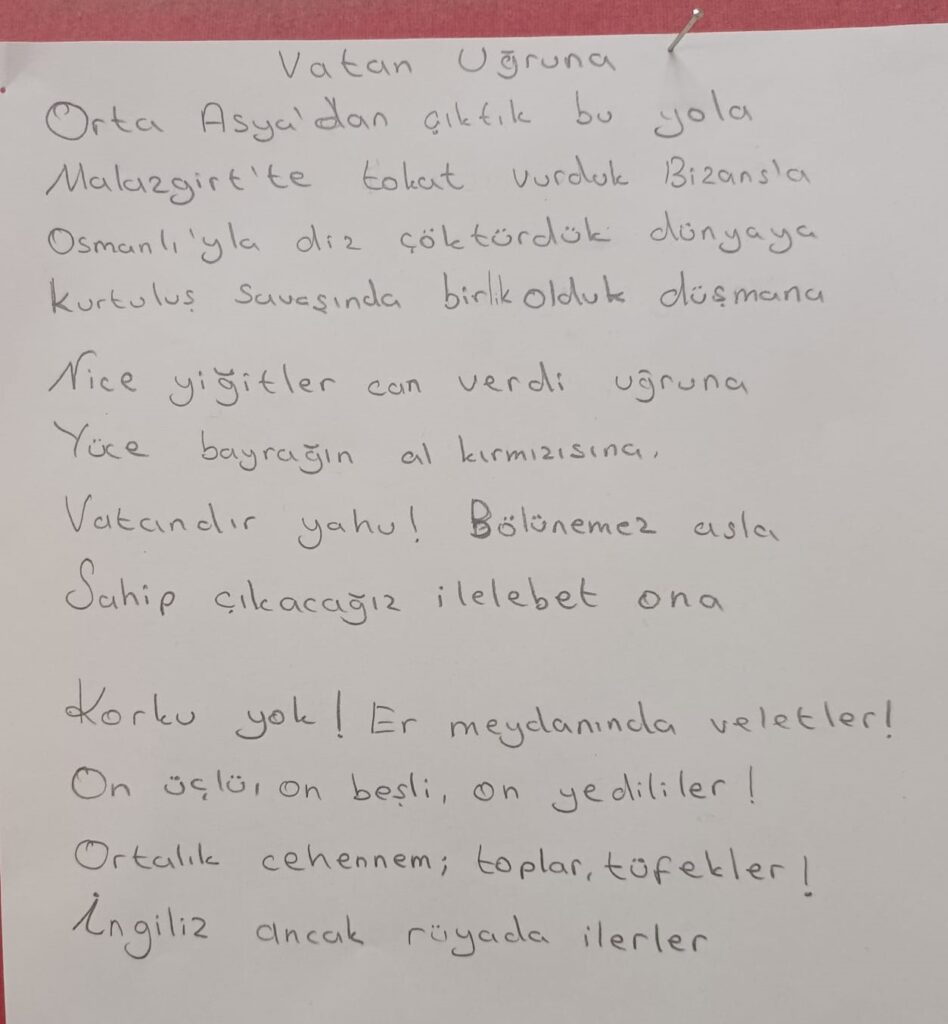 Vatan Uğruna
Orta Asya'dan çıktık bu yola
Malazgirt'te tokat vurduk Bizans'a
Osmanlı'yla diz çöktürdük dünyaya
Kurtuluş savaşında birlik olduk düşmana
Nice yiğitler can verdi uğruna
Yüce bayrağın al kırmızısına.
Vatandır yahu! Bölünemez asla
Sahip çıkacağız ilelebet ona
Korku yok! Er meydanında veletler!
On üçlü, on beşli, on yedililer!
Ortalık cehennem; toplar, tüfekler!
İngiliz ancak rüyada ilerler